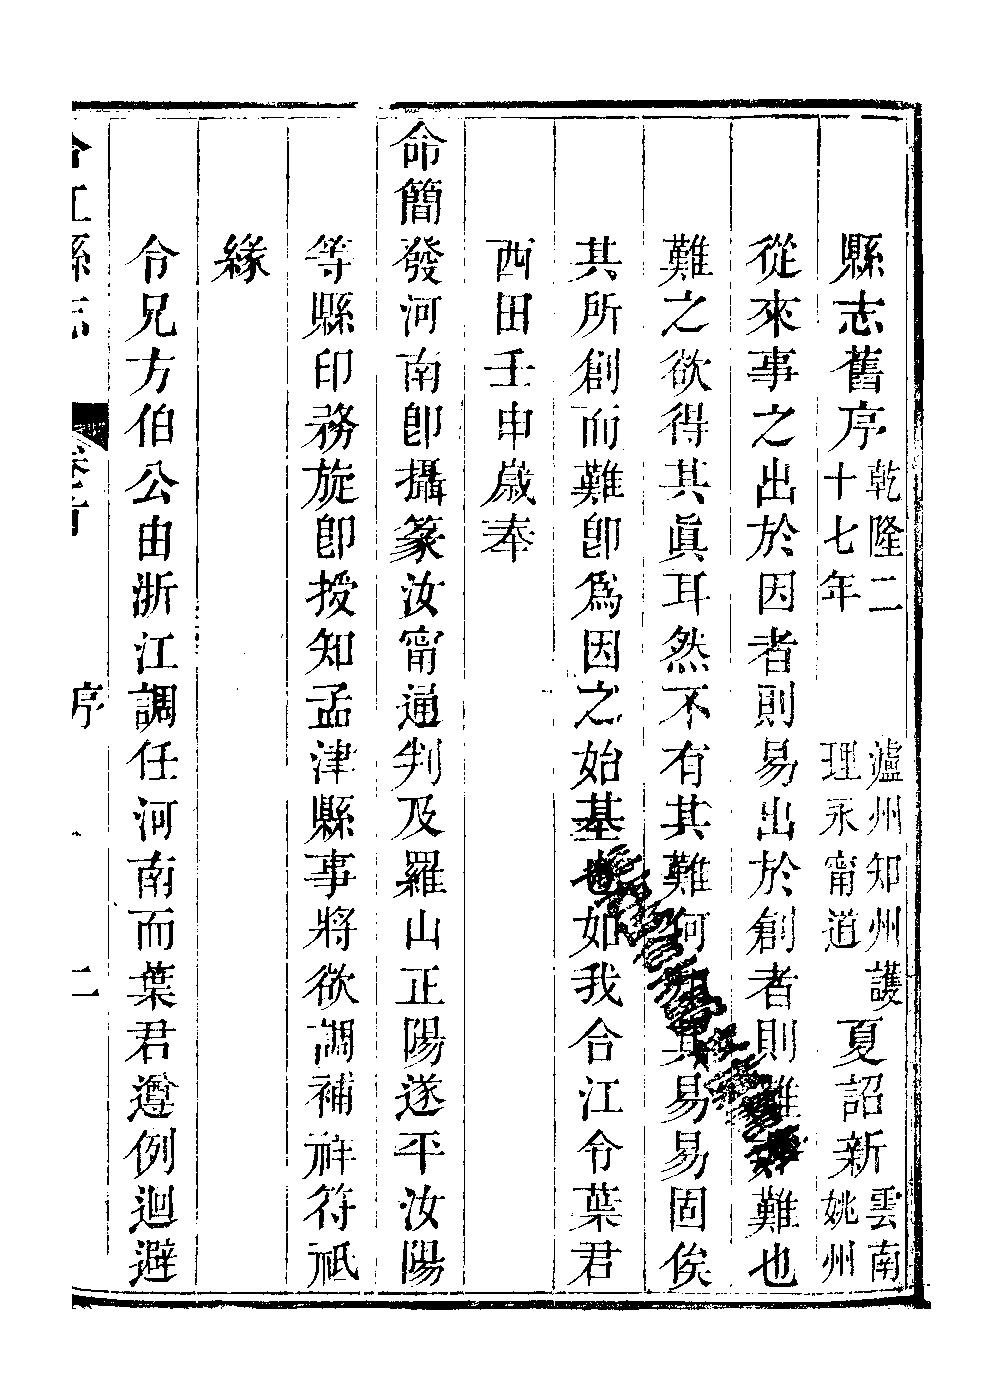 縣志舊序 乾隆二
十七年
瀘州知州護
理永甯道
夏詔新
雲南
姚州
從來事之出於因者則易出於創者則難難也
難之欲得其眞耳然不有其難何其易易固俟
其所創而難卽爲因之始基也如我合江令葉君
西田壬申歲奉
命簡發河南卽攝篆汝甯通判及羅山正陽遂平汝陽
等縣印務旋卽授知孟津縣事將欲調補祥符祗
緣
令兄方伯公由浙江調任河南而葉君遵例迴避
合江縣志 卷首 序 二